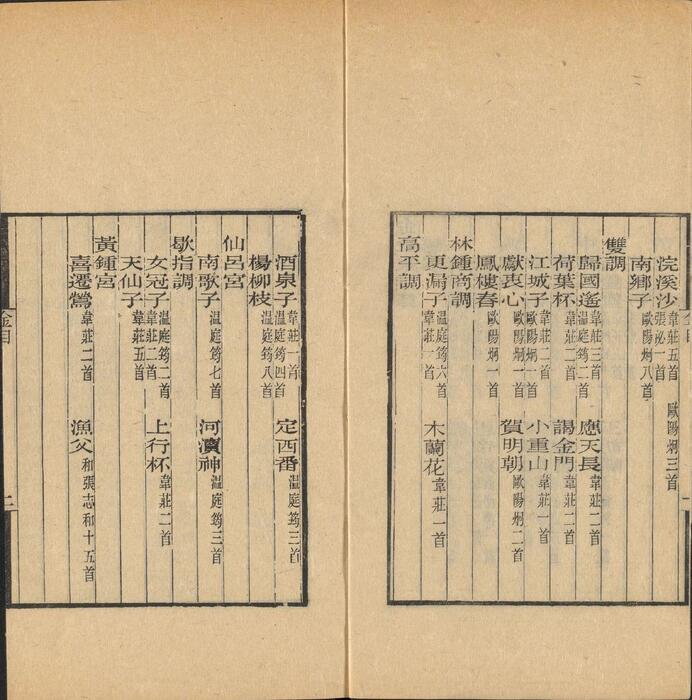 浣溪沙 韋莊五首 張泌一首 歐陽炯三首
南鄉子 歐陽炯八首
雙調
歸國遙 韋莊三首 溫庭筠二首 應天長 韋莊二首
荷葉杯 韋莊二首 謁金門 韋莊二首
江城子 韋莊二首 歐陽炯一首 小重山 韋莊一首
獻衷心 歐陽炯一首 賀明朝 歐陽炯二首
鳳樓春 歐陽炯一首
林鍾商調
更漏子 溫庭筠六首 韋莊一首 木蘭花 韋莊一首
高平調
酒泉子 韋莊一首 溫庭筠四首 定西番 溫庭筠三首
楊柳枝 溫庭筠八首
仙呂宮
南歌子 溫庭筠七首 河瀆神 溫庭筠三首
歇指調
女冠子 溫庭筠二首 韋莊二首 上行杯 韋莊二首
天仙子 韋莊五首
黃鍾宮
喜遷鶯 韋莊二首 漁父 和張志和十五首
金目
二